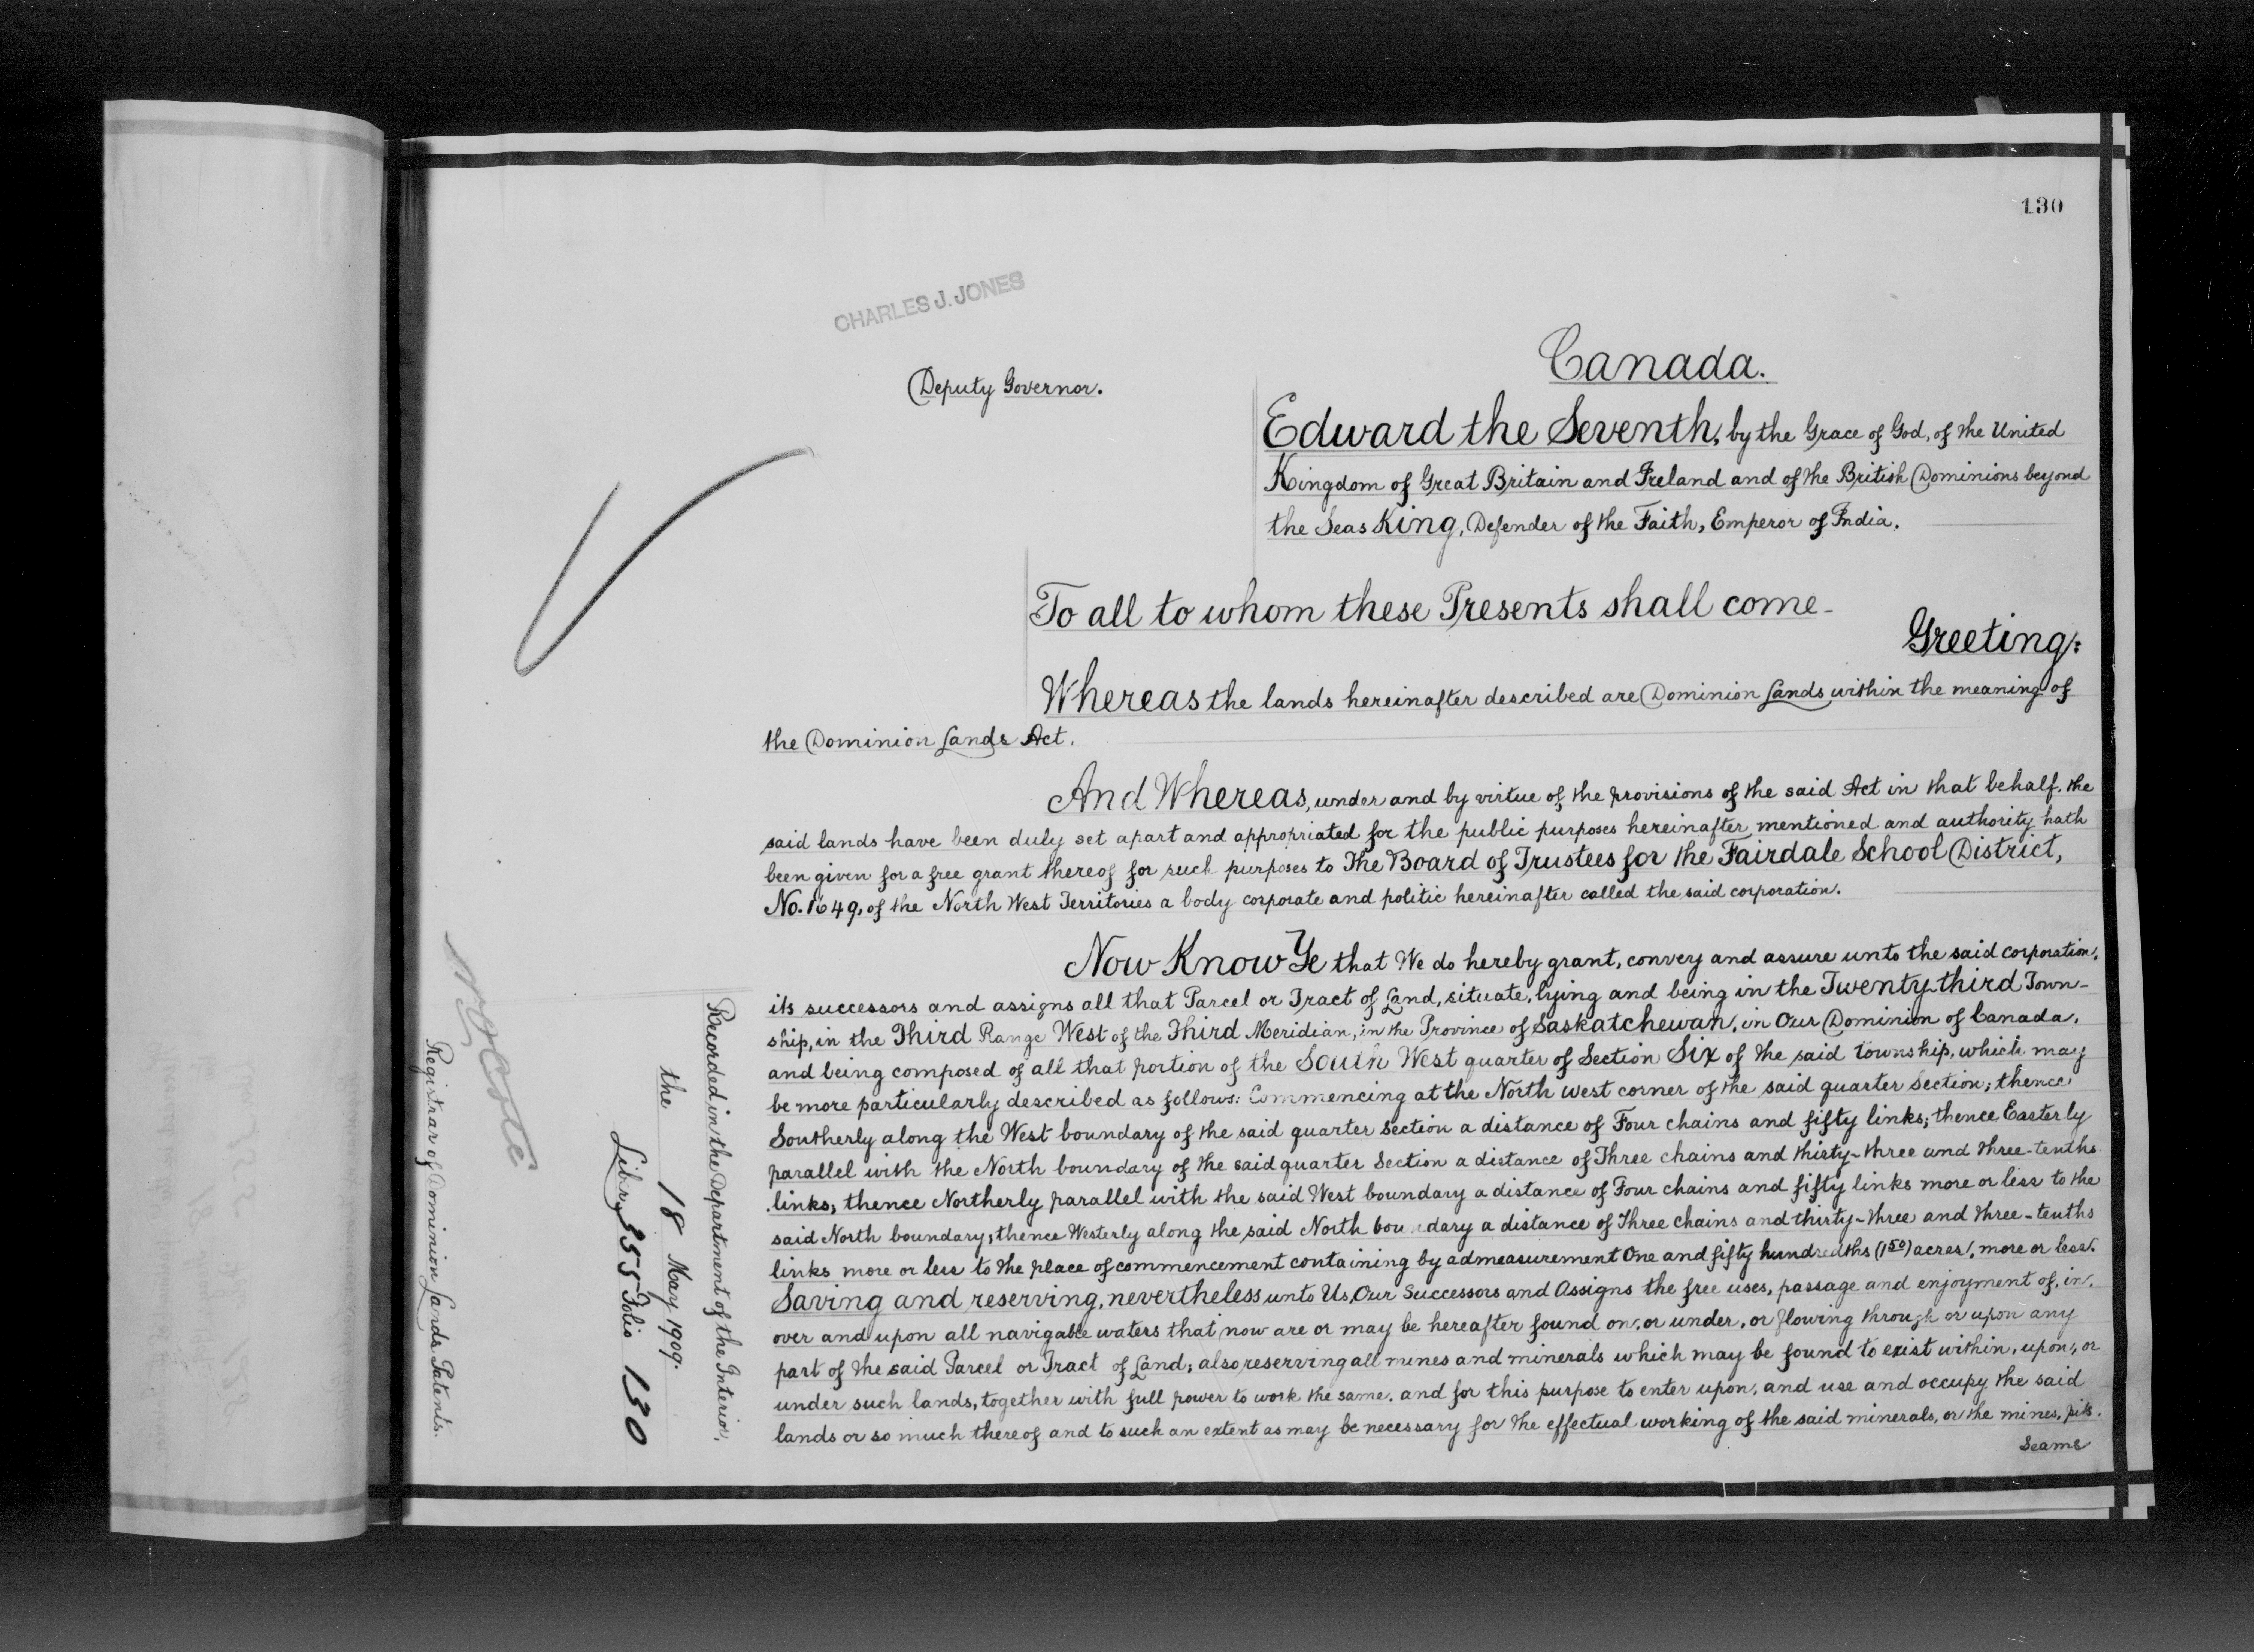 130
CHARLES J. JONES
Deputy Governor.
Canada.
Edward the Seventh, by the Grace of God, of the United
Kingdom of Great Britain and Ireland and of the British Dominions beyond
the Seas King, Defender of the Faith, Emperor of India.
To all to whom these Presents shall come-
Greeting:
Whereas the lands hereinafter described are Dominion Lands within the meaning of
the Dominion Lands Act.
And Whereas, under and by virtue of the provisions of the said Act in that behalf, the
said lands have been duly set apart and appropriated for the public purposes hereinafter mentioned and authority hath
been given for a free grant thereof for such purposes to The Board of Trustees for the Fairdale School District,
No. 1649, of the North West Territories a body corporate and politic hereinafter called the said corporation.
Now Know Ye that We do hereby grant, convey and assure unto the said corporation,
its successors and assigns all that Parcel or Tract of Land, situate, lying and being in the Twenty-third Town-
ship, in the Third Range West of the Third Meridian, in the Province of Saskatchewan, in Our Dominion of Canada,
and being composed of all that portion of the South West quarter of Section Six of the said township, which may
be more particularly described as follows: Commencing at the North west corner of the said quarter section; thence
Southerly along the West boundary of the said quarter section a distance of Four chains and fifty links; thence Easterly
parallel with the North boundary of the said quarter Section a distance of Three chains and thirty-three and three-tenths
links, thence Northerly parallel with the said West boundary a distance of Four chains and fifty links more or less to the
said North boundary; thence Westerly along the said North boundary a distance of Three chains and thirty-three and three-tenths
links more or less to the place of commencement containing by admeasurement One and fifty hundredths (1 50) acres, more or less.
Saving and reserving, nevertheless unto Us, Our Successors and Assigns the free uses, passage and enjoyment of, in,
over and upon all navigable waters that now are or may be hereafter found on, or under, or flowing through or upon any
part of the said Parcel or Tract of Land; also reserving all mines and minerals which may be found to exist within, upon, or
under such lands, together with full power to work the same, and for this purpose to enter upon, and use and occupy the said
lands or so much thereof and to such an extent as may be necessary for the effectual working of the said minerals, or the mines, pits,
seams
Recorded in the Department of the Interior,
the 18 May 1909.
Libry 355 Folio 130
N. O. Coté
Registrar of Dominion Lands Patents.